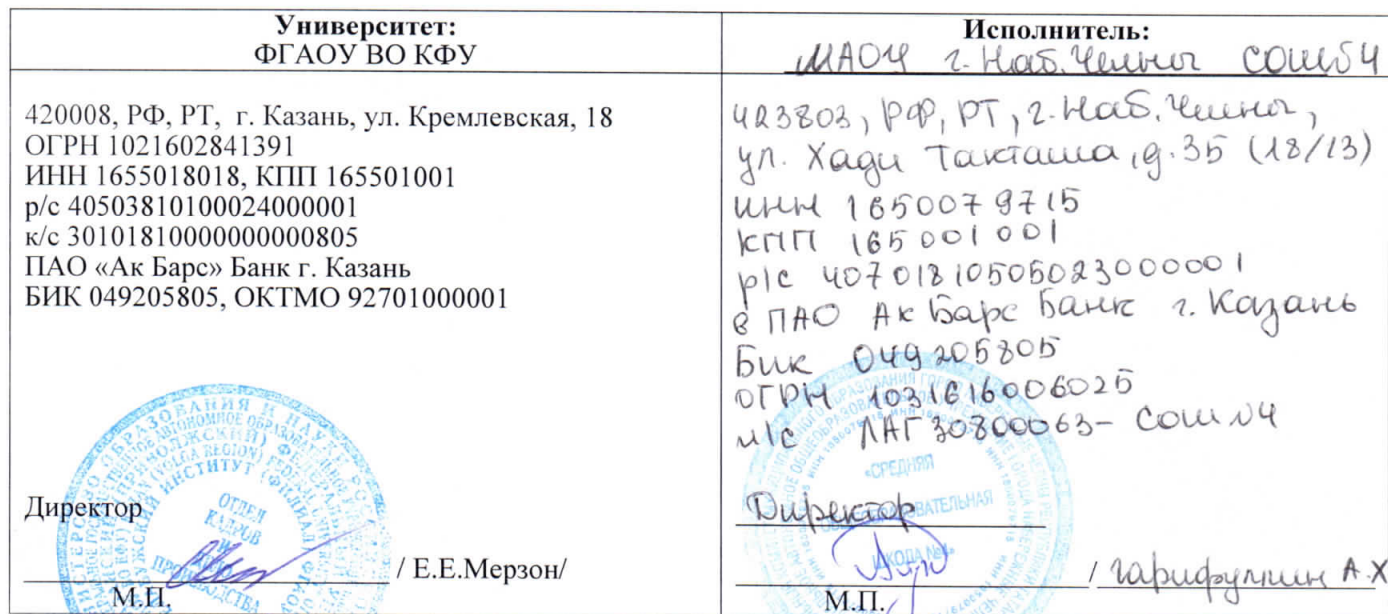 Университет:
ФГАОУ ВО КФУ
420008, РФ, РТ, г. Казань, ул. Кремлевская, 18
ОГРН 1021602841391
ИНН 1655018018, КПП 165501001
р/с 40503810100024000001
к/с 30101810000000000805
ПАО «Ак Барс» Банк г. Казань
БИК 049205805, ОКТМО 92701000001
Директор
/ Е.Е.Мерзон/
М.П.
Исполнитель:
МАОУ г. Наб. Челны СОШ№4
423803, РФ, РТ, г. Наб. Челны,
ул. Хади Такташа, д. 35 (18/13)
ИНН 1650079715
КПП 165001001
р/с 40701810505023000001
в ПАО Ак Барс Банк г. Казань
Бик 049205805
ОГРН 1031616006025
л/с ЛАГ30800063- Сош №4
Директор
/ Гарифуллин А.Х
М.П.
ОТДЕЛ
КАДРОВ
«СРЕДНЯЯ